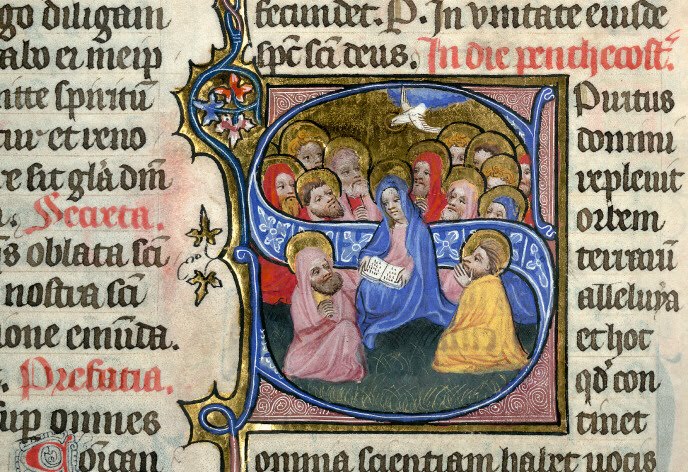 go diligam
abo ei meip
itte spiritū
tur et reno
re sit glā dm̄
Secreta.
s oblata scī
nostra scī
ione emūda.
Prefatia.
sup omnes
oīcan
fecundet. P. In vnitate eiusdē
sp̄c scī deus. In die penthecost̄.
Spiritus
domini
repleuit
orbem
terrarū
alleluya
et hoc
qd̄ con
tinet
omnia scientiam habet uocis